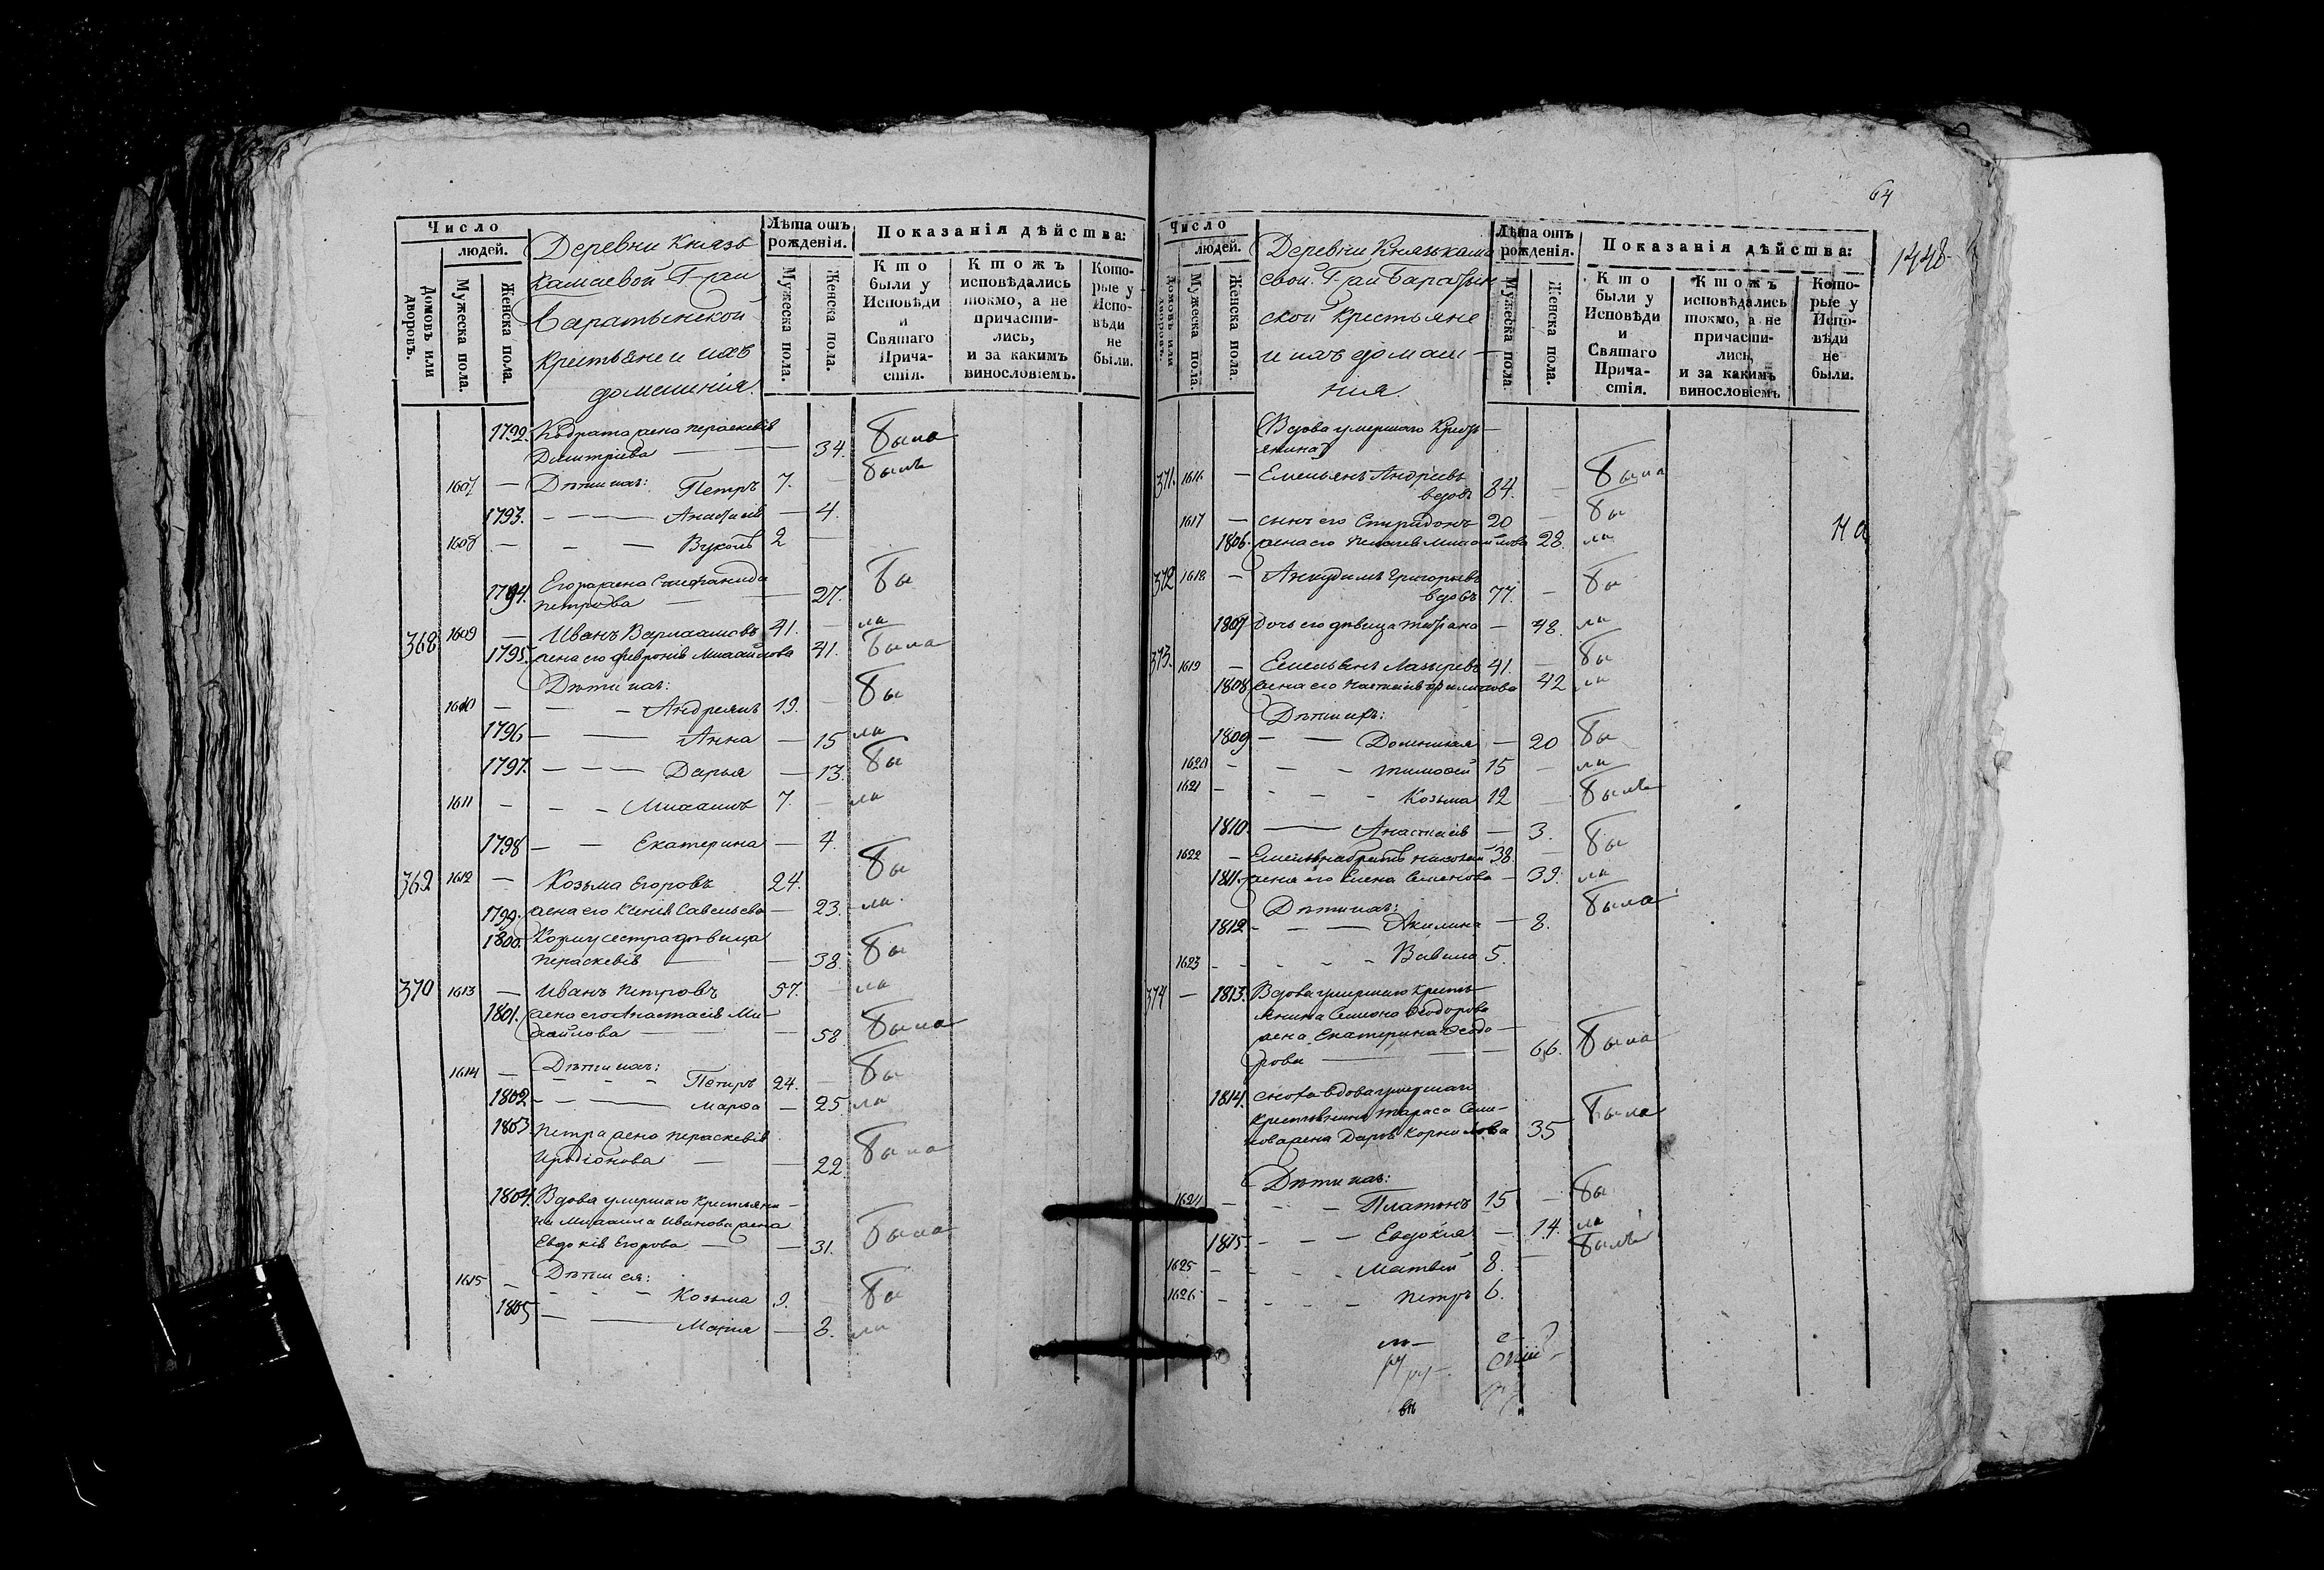 Число
людей.
Домовъ или дворовъ.
Мужеска пола.
Женска пола.
Деревни Князь
Камаевой Г-раи
Баратынской
Крестьяне и ихъ
домашнія.
Лѣта отъ
рожденія.
Мужеска пола.
Женска пола.
Показанія дѣйства:
Кто
были у
Исповѣди
и
Святаго
Прича-
стія.
Ктожъ
исповѣдались
токмо, а не
причасти-
лись,
и за какимъ
винословіемъ.
Кото-
рые у
Испо-
вѣди
не
были.
1792. Кодрата жена Параскевія
Димитріева — — 34. Была
1607 — Дѣти ихъ: Петръ 7. — былъ
1793. — — — Анастасія — 4.
1608 — — — Вуколъ 2 —
1794. Егора жена Стефанида
Петрова — — 27. Бы
368 1609 — Иванъ Варлаамовъ 41. — ла
1795. жена его Февронія Михайлова 41. Была
Дѣти ихъ:
1610 — — — Андреянъ 19. — Бы
1796 — — Анна — 15 ла
1797. — — — Дарья — 13. Бы
1611 — — — Михаилъ 7. — ла
1798 — — Екатерина — 4.
369 1612 — Козьма Егоровъ 24. Бы
1799. жена его Ксенія Савельева — 23. ла
1800. Козмы сестра дѣвица
Параскевія — — 38. Бы
370 1613 — Иванъ Петровъ 57. — ла
1801. жена его Анастасія Ми-
хайлова — — 58 Была
Дѣти ихъ:
1614 — — — — Петръ 24. — Бы
1802 — — — Марѳа — 25 ла
1803. Петра жена Параскевія
Иродіонова — — 22 Была
1804. Вдова умершаго крестьяни-
на Михаила Иванова жена
Евдокія Егорова — — 31. Была
Дѣти ея:
1615 — — — — Козьма 9. — Бы
1805 — — Марія — 3. ла
64
1448.
Число
людей.
Домовъ или дворовъ.
Мужеска пола.
Женска пола.
Деревни Князькама
евой. Г-раи Баратын
ской крестьяне
и ихъ домаш —
нія.
Лѣта отъ
рожденія.
Мужеска пола.
Женска пола.
Показанія дѣйства:
Кто
были у
Исповѣди
и
Святаго
Прича-
стія.
Ктожъ
исповѣдались
токмо, а не
причасти-
лись,
и за какимъ
винословіемъ
Кото-
рые у
Испо-
вѣди
не
были.
Вдова умершаго Кресть —
янина
371. 1616 — Емельянъ Андреевъ
вдовъ 84. — Была
1617 — сынъ его Спиридонъ 20 — бы
1806. жена его Михайлова 28. ла
372 1618 — Анкудимъ Григорьевъ
вдовъ 77. — бы
1807 дочь его дѣвица Татіана — 48. ла
373. 1619 — Емельянъ Лазаревъ 41. — бы
1808 жена его Настасія Филипова 42 ла
Дѣти ихъ:
1809 — — Домникія — 20 бы
1620 — — — Тимоѳей 15 — ла
1621 — — — — Козьма 12 — былъ
1810. — — Анастасія — 3.
1622 — Емельяна братъ Николай 38. — бы
1811. жена его Елена Семенова — 39. ла
Дѣти ихъ:
1812 — — — Акилина — 8. была
1623 — — — — Вавила 5.
374 — 1813. Вдова умершаго кресть —
янина Симиона Ѳеодорова
жена Екатерина Ѳеодо —
рова — — — 66. Была
1814. сноха вдова умершаго
крестьянина Тараса Семе-
нова жена Дарья Корнилова 35 Была
Дѣти ихъ:
1624 — — — Платонъ 15 — бы
1815. — — — Евдокія — 14. ла
1625 — — — Матвей 8. — былъ
1626 — — — Петръ 6.